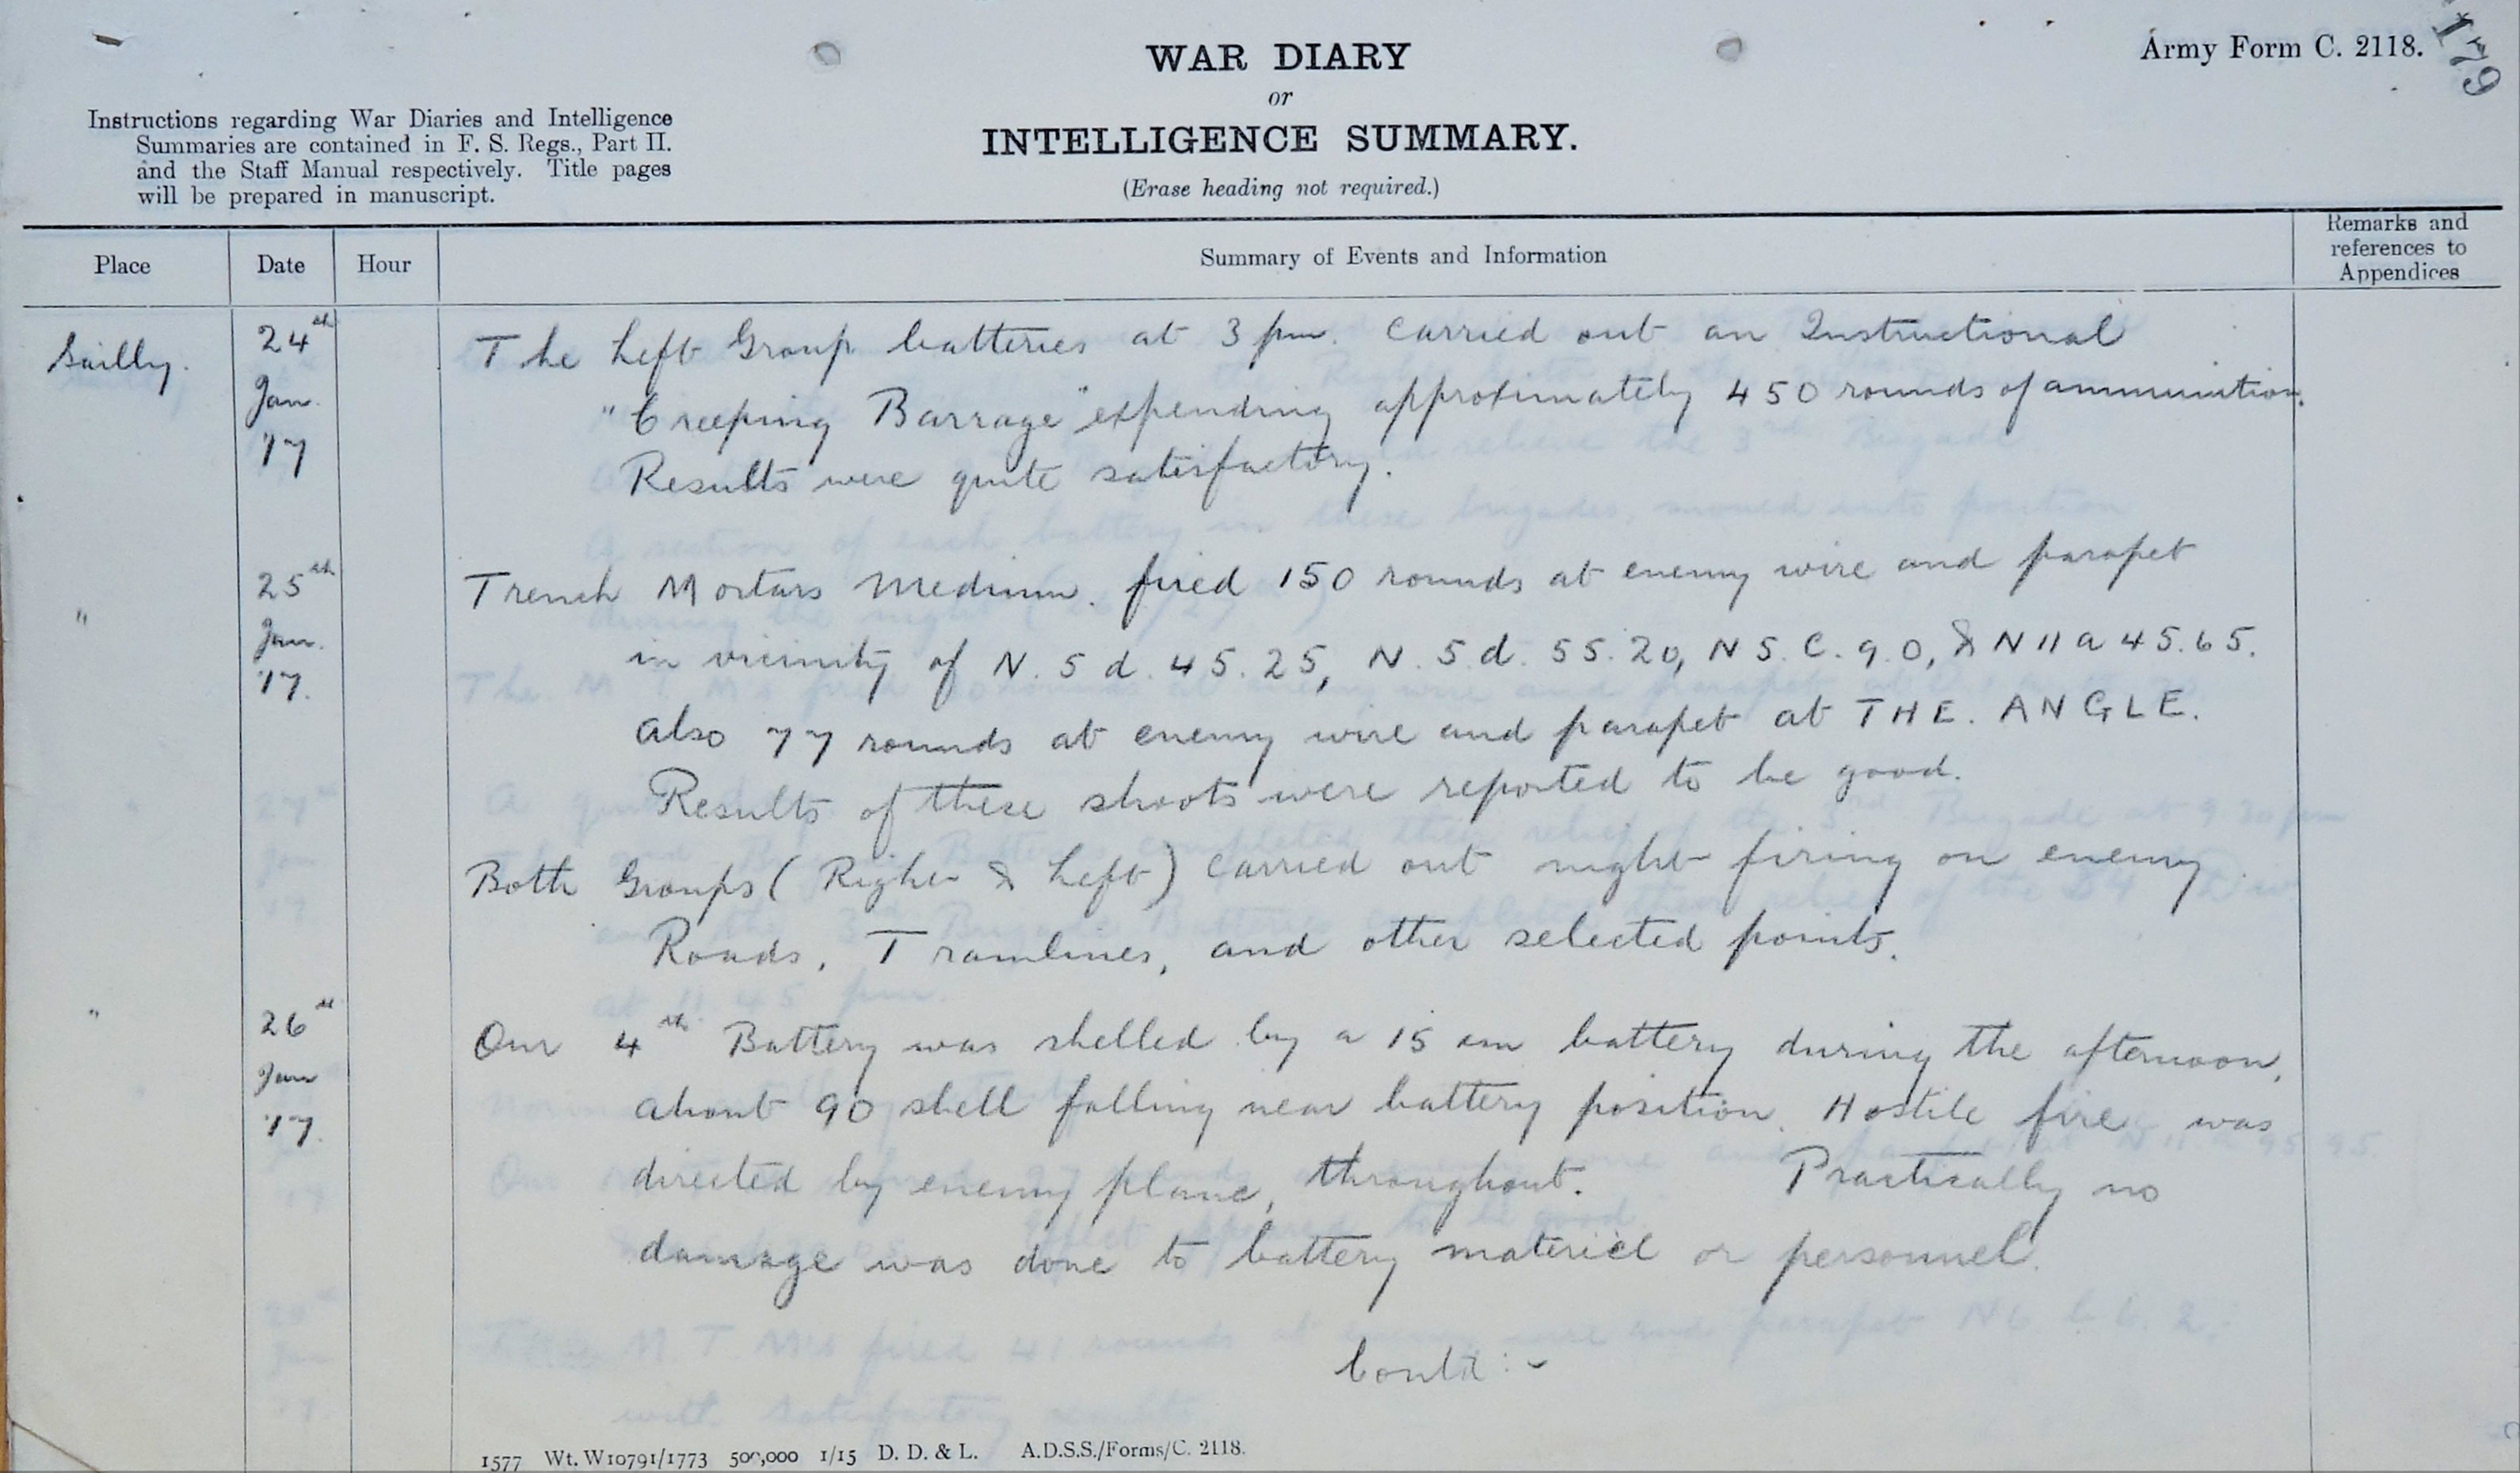 179
WAR DIARY
Army Form C. 2118.
or
INTELLIGENCE SUMMARY.
(Erase heading not required.)
Instructions regarding War Diaries and Intelligence
Summaries are contained in F. S. Regs., Part II.
and the Staff Manual respectively. Title pages
will be prepared in manuscript.
Place Date Hour Summary of Events and Information Remarks and references to Appendices
Sailly. 24th Jan. 17 The Left Group batteries at 3 pm. carried out an Instructional
"Creeping Barrage" expending approximately 450 rounds of ammunition.
Results were quite satisfactory.
" 25th Jan. '17. Trench Mortars Medium. fired 150 rounds at enemy wire and parapet
in vicinity of N. 5 d. 45. 25, N. 5 d. 55. 20, N 5. C. 9. 0, & N 11 a 45. 65.
also 77 rounds at enemy wire and parapet at THE. ANGLE.
Results of these shoots were reported to be good.
Both Groups (Right & Left) carried out night firing on enemy
Roads, Tramlines, and other selected points.
" 26th Jan '17. Our 4th Battery was shelled by a 15 cm battery during the afternoon,
about 90 shell falling near battery position. Hostile fire was
directed by enemy plane, throughout. Practically no
damage was done to battery materiel or personnel.
Contd :-
1577 Wt. W10791/1773 500,000 1/15 D. D. & L. A.D.S.S./Forms/C. 2118.